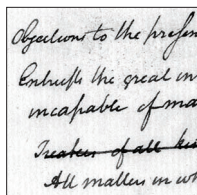 Objections to the presen
Entrusts the great in
incapable of ma
Treaties of all kin
All matters in wh